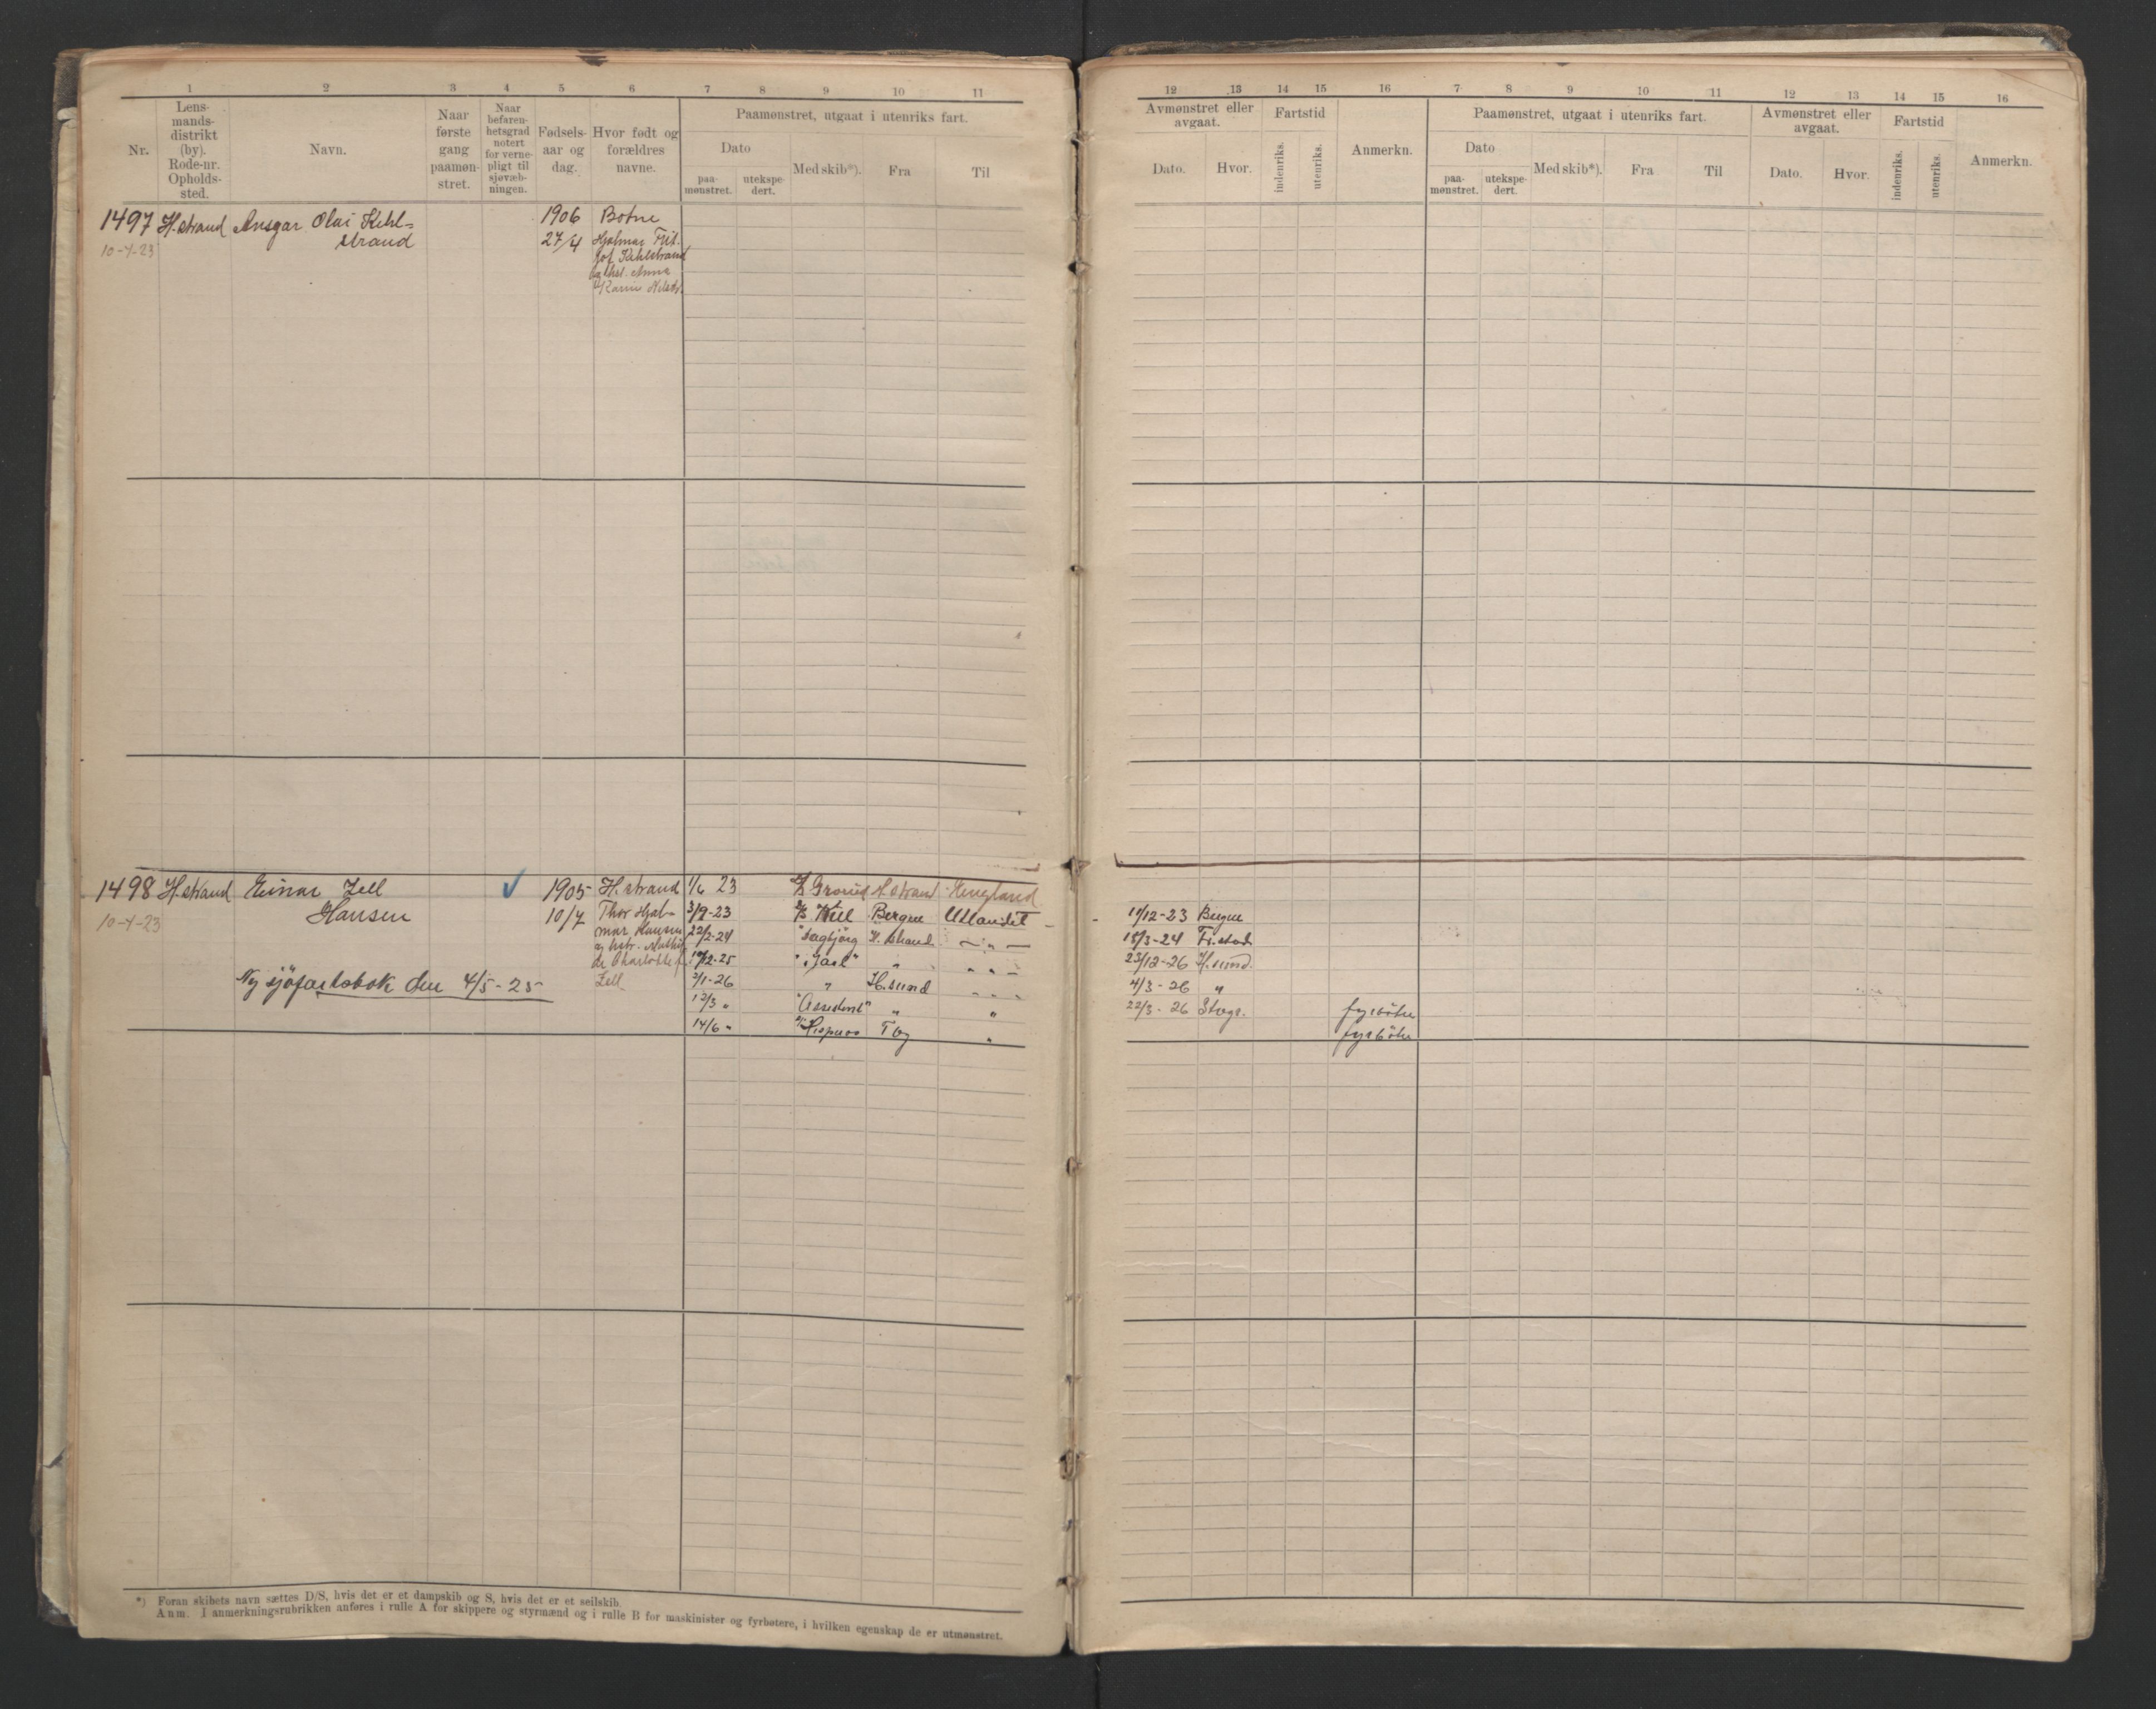 1 2 3 4 5 6 7 8 9 10 11
Nr.
Lens-
mands-
distrikt
(by).
Rode-nr.
Opholds-
sted.
Navn.
Naar
første
gang
paamøn-
stret.
Naar
befaren-
hetsgrad
notert
for verne-
pligt til
sjøvæb-
ningen.
Fødsels-
aar og
dag.
Hvor født og
forældres
navne.
Paamønstret, utgaat i utenriks fart.
Dato
paa-
mønstret.
utekspe-
dert.
Med skib*).
Fra
Til
1497 H.strand Ansgar Olai Kehl-
strand
10-4-23
1906
27/4
Botne
Hjalmar Frit-
jof Kehlstrand
og hst. Anna
Karin
1498 H.strand Einar Zell
Hansen
10-4-23
Ny sjöfartsbok den 4/5-25
1905
10/7
H.strand
Thor Hjal-
mar Hansen
og hstr. Mathil-
de Charlotte f.
Zell
1/6 23 H.strand England
3/9-23 Bergen Utlandet
22/2-24 Dagbjörg H.strand — " —
"Jarl" " " " —
2/1-26 " H.sund " " "
12/3 " "Assistent" " "
14/6 " Tbg "
*) Foran skibets navn sættes D/S, hvis det er et dampskib og S, hvis det er et seilskib.
Anm. I anmerkningsrubrikken anføres i rulle A for skippere og styrmænd og i rulle B for maskinister og fyrbøtere, i hvilken egenskap de er utmønstret.
12 13 14 15 16 7 8 9 10 11 12 13 14 15 16
Avmønstret eller
avgaat.
Dato. Hvor.
Fartstid
indenriks. utenriks.
Anmerkn.
Paamønstret, utgaat i utenriks fart.
Dato
paa-
mønstret.
utekspe-
dert.
Med skib*).
Fra
Til
Avmønstret eller
avgaat.
Dato. Hvor.
Fartstid
indenriks. utenriks.
Anmerkn.
/12-23 Bergen
18/3-24 Fr.stad
23/12-26 H.sund.
4/3-26 "
22/3-26 fyrböter
fyrböter